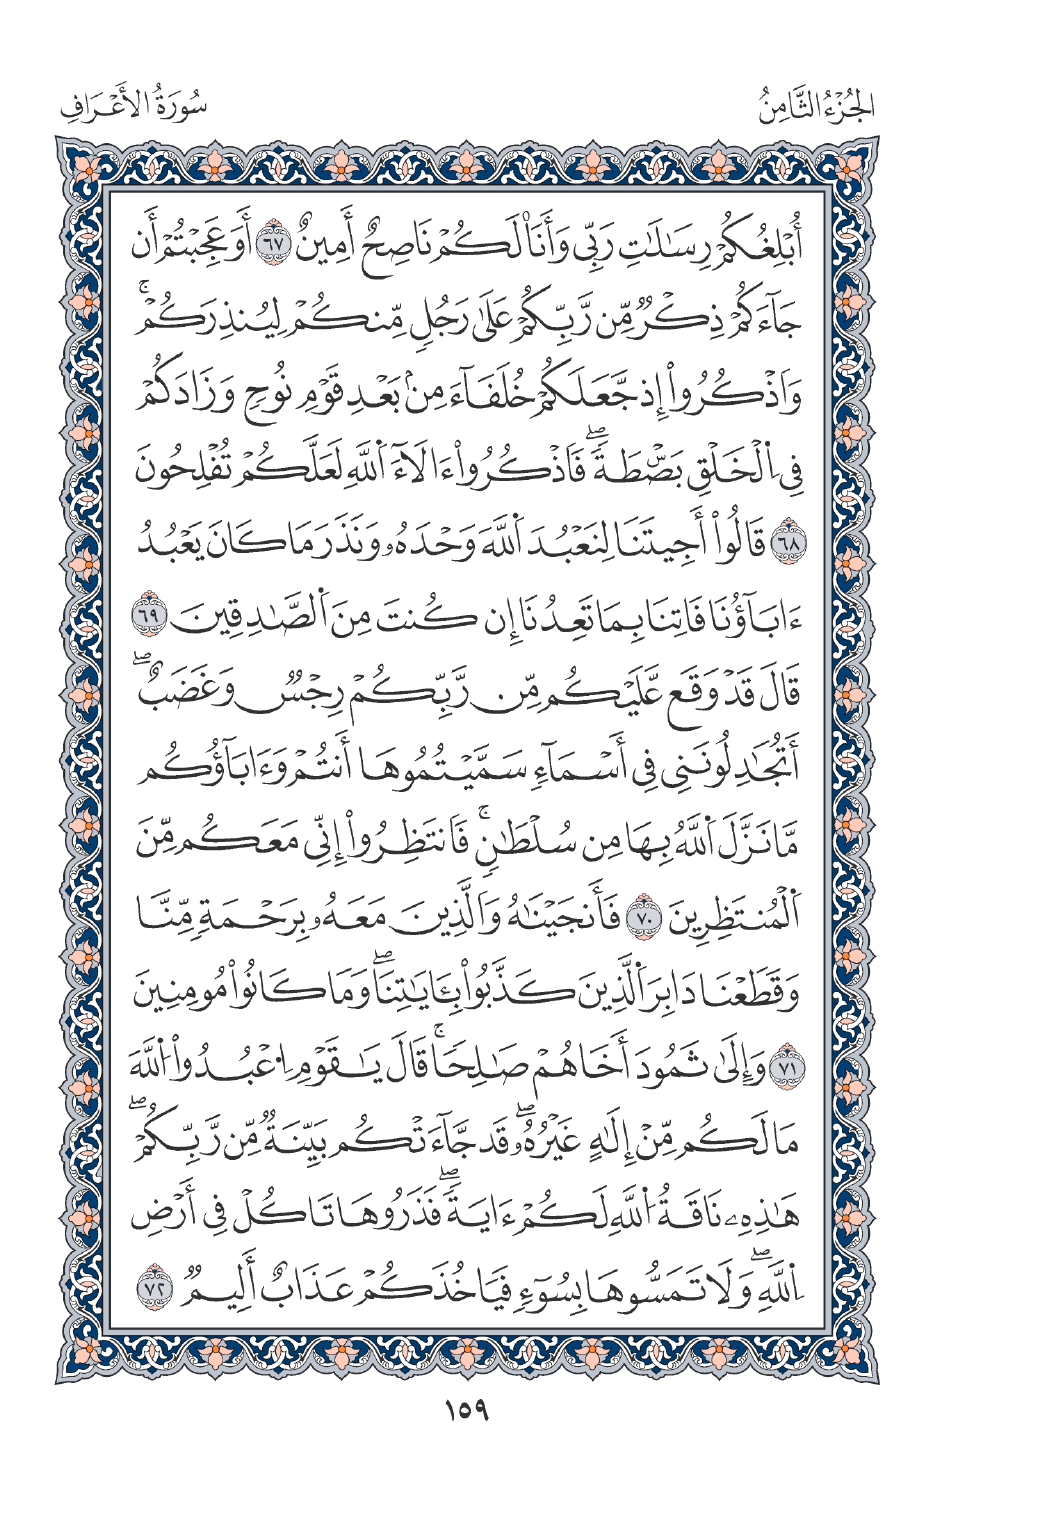 الجُزْءُ الثَّامِنُ
سُورَةُ الأَعْرَافِ
أُبْلِغُكُمْ رِسَٰلَٰتِ رَبِّي وَأَنَا۠ لَكُمْ نَاصِحٌ أَمِينٌ ٦٧ أَوَعَجِبْتُمْ أَن
جَآءَكُمْ ذِكْرٌ مِّن رَّبِّكُمْ عَلَىٰ رَجُلٍ مِّنكُمْ لِيُنذِرَكُمْ ۚ
وَاَذْكُرُواْ إِذ جَّعَلَكُمْ خُلَفَآءَ مِنۢ بَعْدِ قَوْمِ نُوحٍ وَزَادَكُمْ
فِي اِ۬لْخَلْقِ بَصْۜطَةً ۖ فَاذْكُرُواْ ءَالَآءَ اَ۬للَّهِ لَعَلَّكُمْ تُفْلِحُونَ
٦٨ قَالُواْ أَجِيتَنَا لِنَعْبُدَ اَ۬للَّهَ وَحْدَهُۥ وَنَذَرَ مَا كَانَ يَعْبُدُ
ءَابَآؤُنَا فَاتِنَا بِمَا تَعِدُنَا إِن كُنتَ مِنَ اَ۬لصَّٰدِقِينَ ٦٩
قَالَ قَدْ وَقَع عَّلَيْكُم مِّن رَّبِّكُمْ رِجْسٌ وَغَضَبٌ ۖ
أَتُجَٰدِلُونَنِي فِي أَسْمَآءٍ سَمَّيْتُمُوهَا أَنتُمْ وَءَابَآؤُكُم
مَّا نَزَّلَ اَ۬للَّهُ بِهَا مِن سُلْطَٰنٍ ۚ فَانتَظِرُواْ إِنِّي مَعَكُم مِّنَ
اَ۬لْمُنتَظِرِينَ ٧٠ فَأَنجَيْنَٰهُ وَالَّذِينَ مَعَهُۥ بِرَحْمَةٍ مِّنَّا
وَقَطَعْنَا دَابِرَ اَ۬لَّذِينَ كَذَّبُواْ بِـَٔايَٰتِنَا ۖ وَمَا كَانُواْ مُومِنِينَ
٧١ وَإِلَىٰ ثَمُودَ أَخَاهُمْ صَٰلِحًا ۚ قَالَ يَٰقَوْمِ اِ۟عْبُدُواْ اُ۬للَّهَ
مَا لَكُم مِّنْ إِلَٰهٍ غَيْرُهُۥ ۖ قَد جَّآءَتْكُم بَيِّنَةٌ مِّن رَّبِّكُمْ ۖ
هَٰذِهِۦ نَاقَةُ اُ۬للَّهِ لَكُمْ ءَايَةً ۖ فَذَرُوهَا تَاكُلْ فِي أَرْضِ
اِ۬للَّهِ ۖ وَلَا تَمَسُّوهَا بِسُوٓءٍ فَيَاخُذَكُمْ عَذَابٌ أَلِيمٌ ٧٢
١٥٩